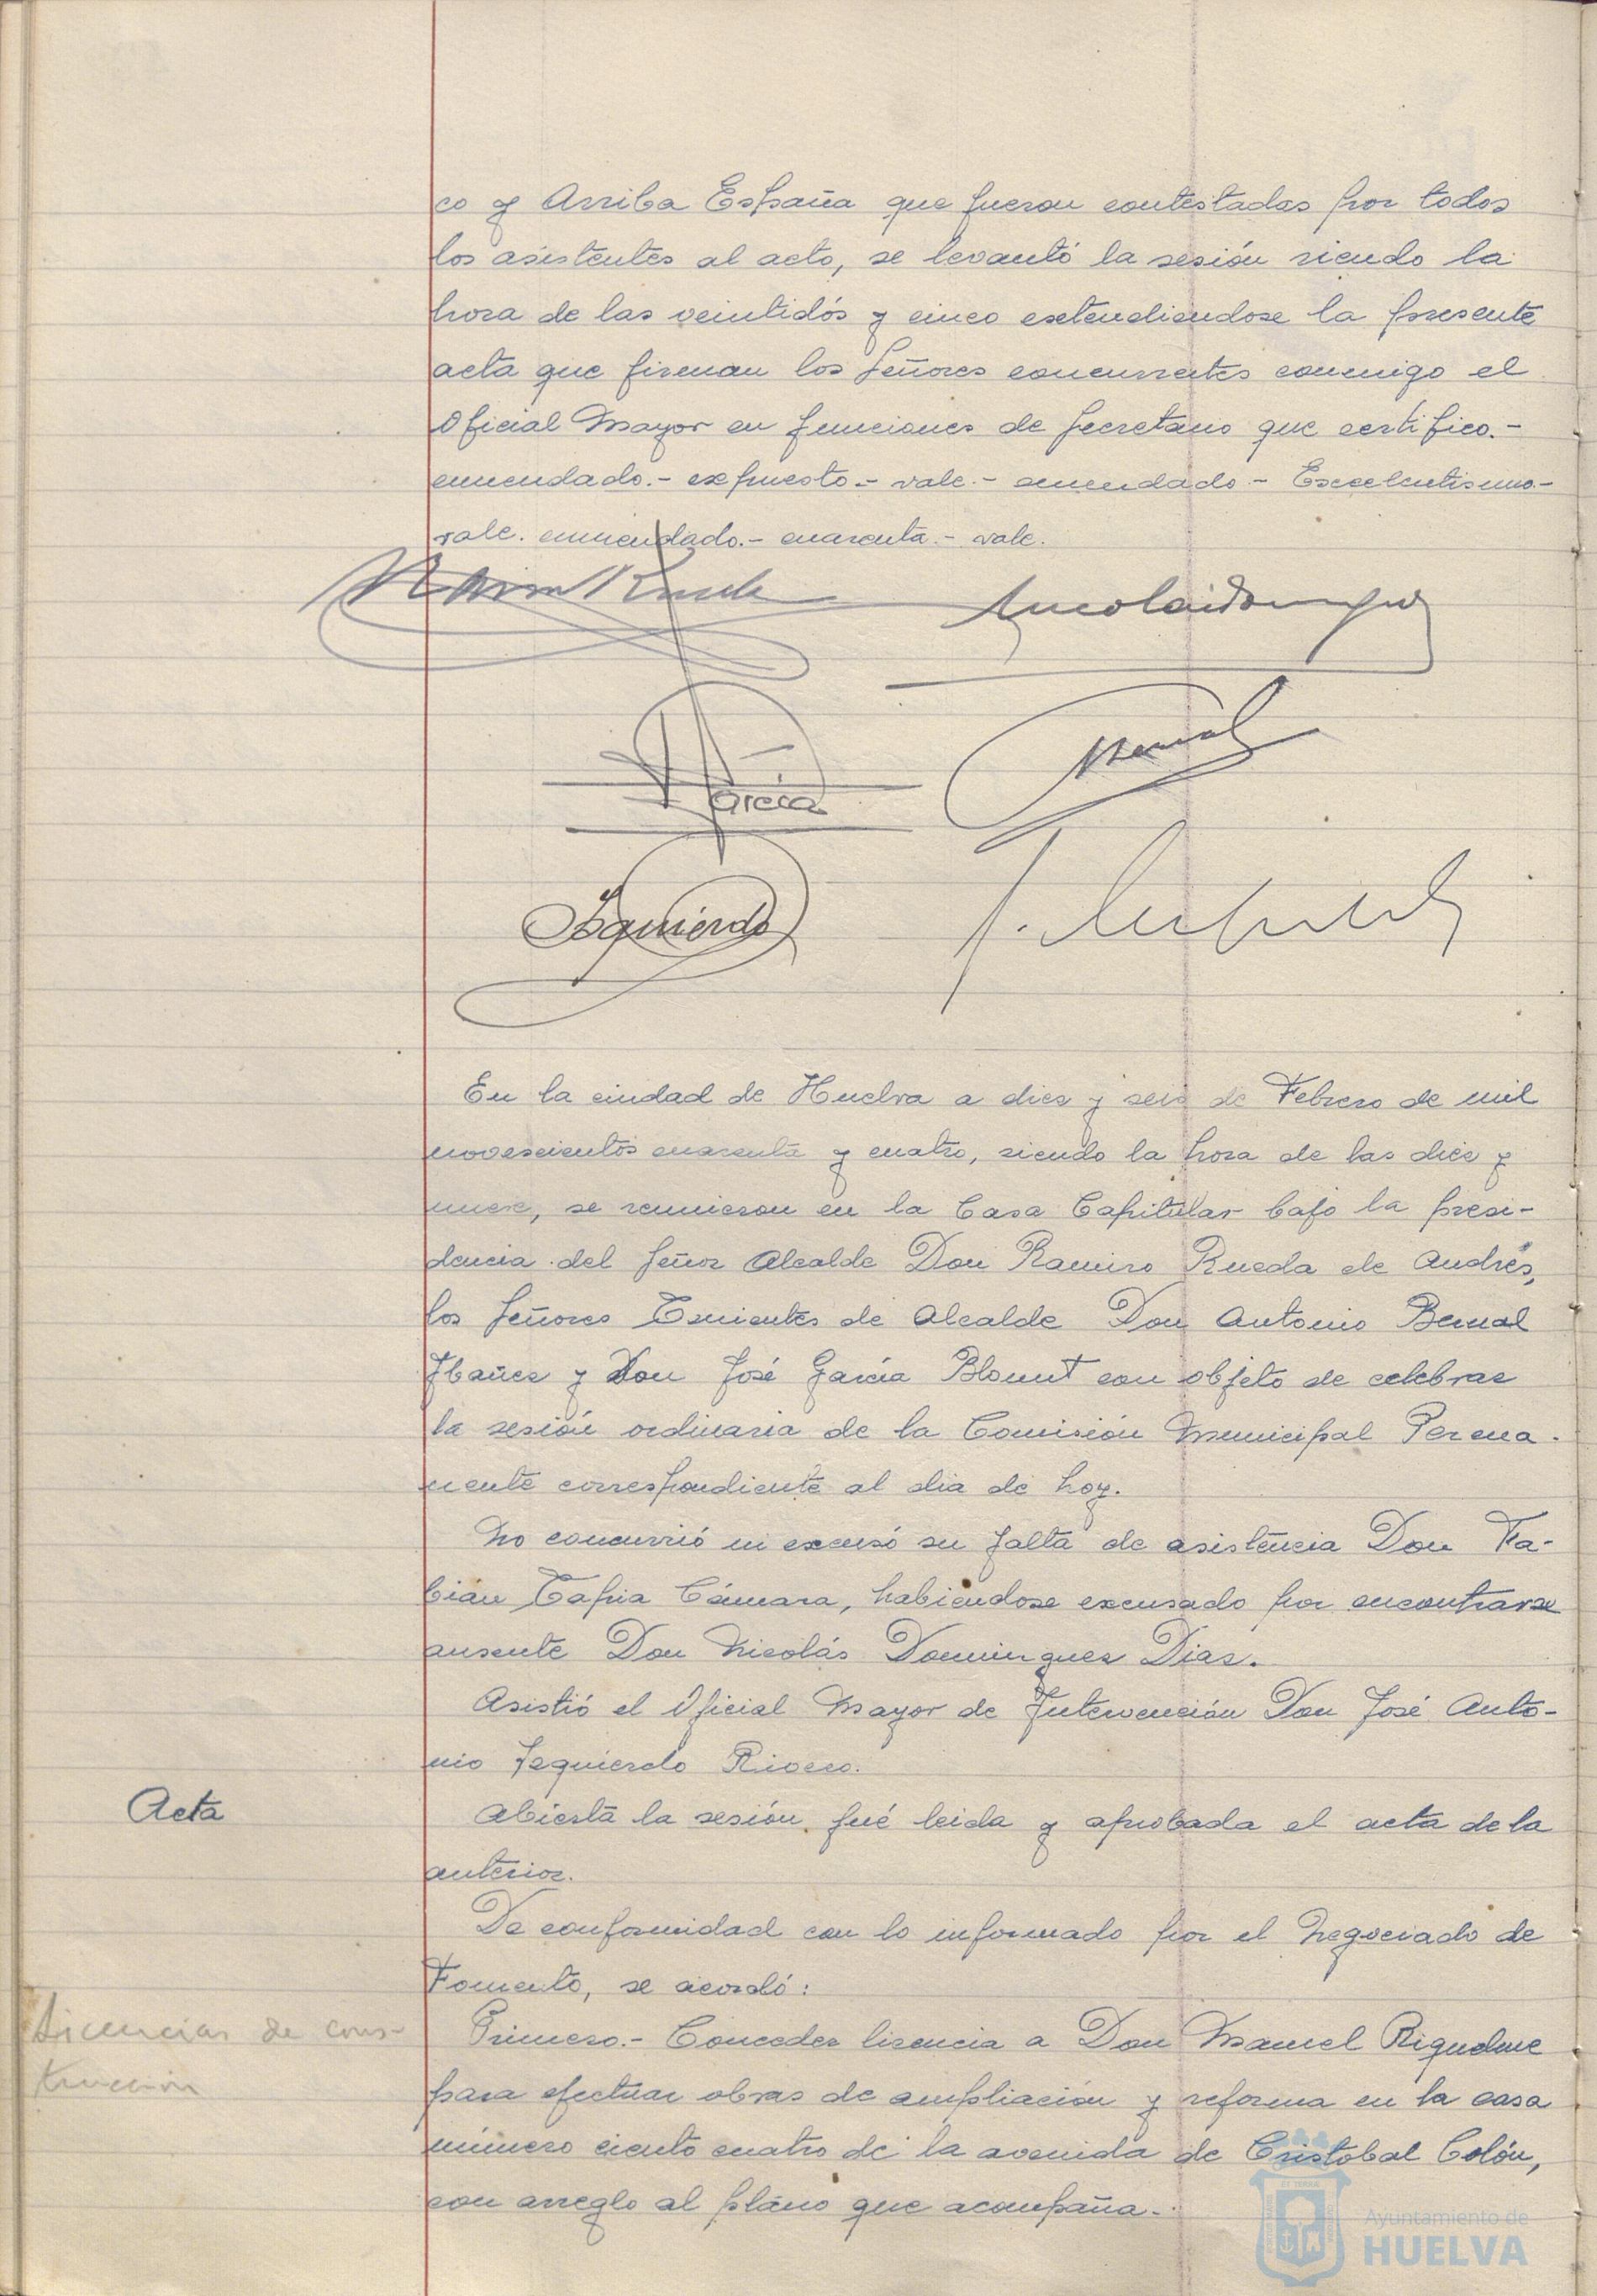 co y Arriba España que fueron contestadas por todos
los asistentes al acto, se levantó la sesión siendo la
hora de las veintidós y cinco extendiendose la presente
acta que firman los Señores concurrentes conmigo el
Oficial Mayor en funciones de Secretario que certifico.-
enmendado.- expuesto.- vale.- enmendado.- Excelentisimo.-
vale. enmendado.- cuarenta.- vale.
Nicolás Domínguez
García
Bernal
Izquierdo
En la ciudad de Huelva a diez y seis de Febrero de mil
novescientos cuarenta y cuatro, siendo la hora de las diez y
nueve, se reunieron en la Casa Capitular bajo la presi-
dencia del Señor Alcalde Don Ramiro Rueda de Andrés,
los Señores Tenientes de Alcalde Don Antonio Bernal
Ibañez y Don José García Blount con objeto de celebrar
la sesión ordinaria de la Comisión Municipal Perma-
nente correspondiente al dia de hoy.
No concurrió ni excusó su falta de asistencia Don Fa-
bián Tapia Cámara, habiendose excusado por encontrarse
ausente Don Nicolás Dominguez Diaz.
Asistió el Oficial Mayor de Intervención Don José Anto-
nio Izquierdo Rivero.
Acta
Abierta la sesión fué leida y aprobada el acta de la
anterior.
De conformidad con lo informado por el Negociado de
Fomento, se acordó:
Licencias de cons-
trucción
Primero.- Conceder licencia a Don Manuel Riquelme
para efectuar obras de ampliación y reforma en la casa
número ciento cuatro de la avenida de Cristobal Colón,
con arreglo al plano que acompaña.
Ayuntamiento de
HUELVA